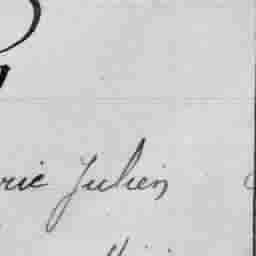 rie Julien